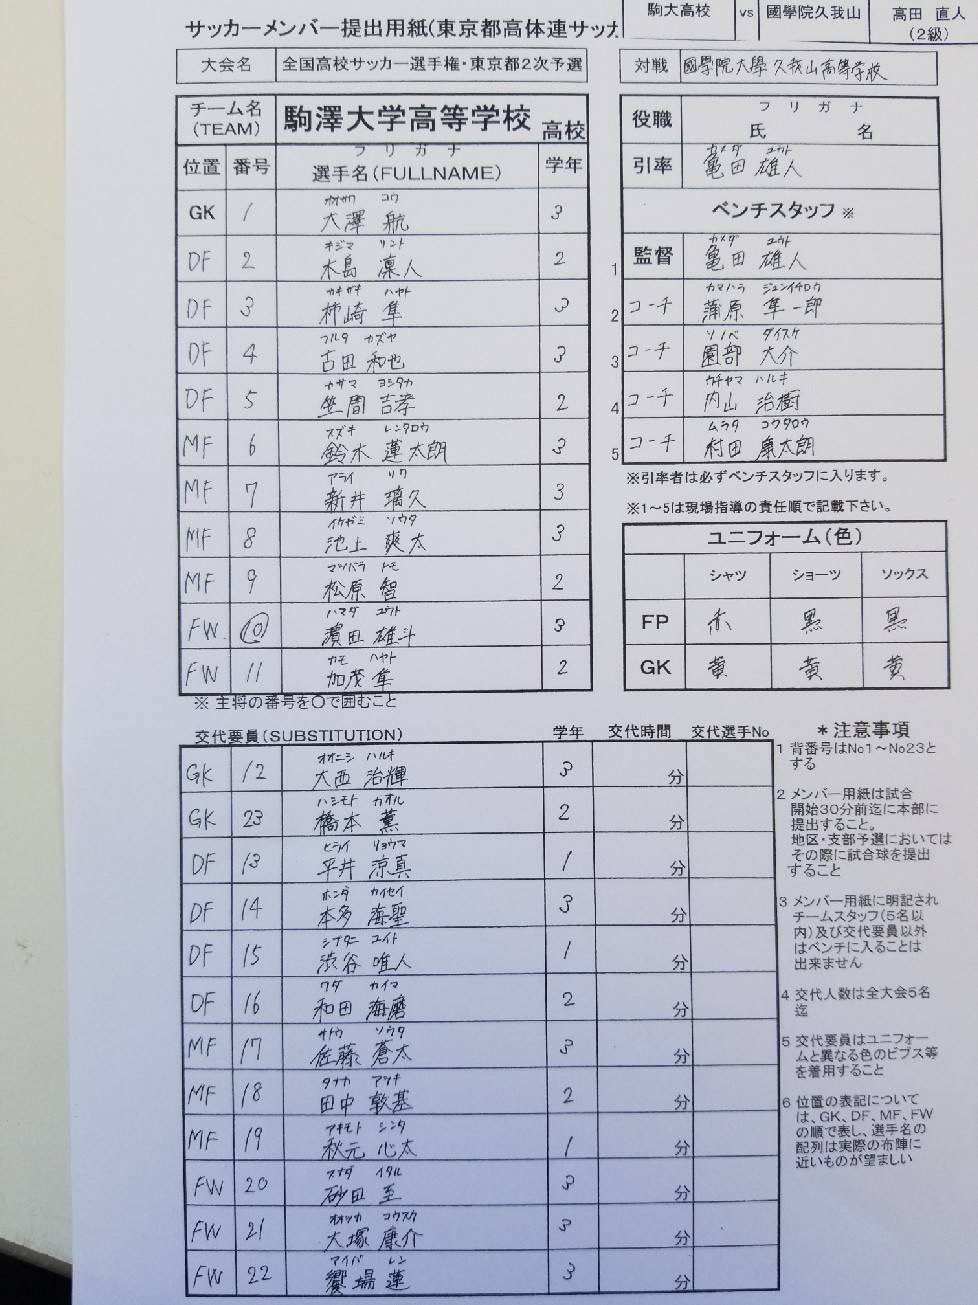 駒大高校 vs 國學院久我山 高田 直人
(2級)
サッカーメンバー提出用紙(東京都高体連サッカ
大会名 全国高校サッカー選手権・東京都2次予選
対戦 國學院大學久我山高等学校
チーム名
(TEAM)
駒澤大学高等学校 高校
位置 番号 フリガナ
選手名(FULLNAME) 学年
オオサワ コウ
GK 1 大澤 航 3
キジマ リント
DF 2 木島 凛人 2
カキザキ ハヤト
DF 3 柿崎 隼 3
フルタ カズヤ
DF 4 古田 和也 3
カサマ ヨシタカ
DF 5 笠間 吉孝 2
スズキ レンタロウ
MF 6 鈴木 蓮太朗 3
アライ リク
MF 7 新井 璃久 3
イケガミ ソウタ
MF 8 池上 爽太 3
マツバラ トモ
MF 9 松原 智 2
ハマダ ユウト
FW. 10 濱田 雄斗 3
カモ ハヤト
FW 11 加茂 隼 2
※ 主将の番号を○で囲むこと
役職 フリガナ
氏 名
カメダ ユウト
引率 亀田 雄人
ベンチスタッフ ※
カメダ ユウト
1 監督 亀田 雄人
カマハラ ジュンイチロウ
2 コーチ 蒲原 隼一郎
ソノベ ダイスケ
3 コーチ 園部 大介
カチヤマ ハルキ
4 コーチ 内山 治樹
ムラタ コウタロウ
5 コーチ 村田 康太朗
※引率者は必ずベンチスタッフに入ります。
※1~5は現場指導の責任順で記載下さい。
ユニフォーム(色)
シャツ ショーツ ソックス
FP 赤 黒 黒
GK 黄 黄 黄
交代要員(SUBSTITUTION) 学年 交代時間 交代選手No
オオニシ ハルキ
GK 12 大西 治輝 3 分
ハシモト カオル
GK 23 橋本 薫 2 分
ヒライ リョウマ
DF 13 平井 涼真 1 分
ホンダ カイセイ
DF 14 本多 海聖 3 分
シブタニ ユイト
DF 15 渋谷 唯人 1 分
ワダ カイマ
DF 16 和田 海磨 2 分
サトウ ソウタ
MF 17 佐藤 蒼太 3 分
タナカ アツキ
MF 18 田中 敦基 2 分
アキモト シンタ
MF 19 秋元 心太 1 分
スナダ イタル
FW 20 砂田 至 3 分
オオツカ コウスケ
FW 21 大塚 康介 3 分
アイバ レン
FW 22 饗場 蓮 3 分
*注意事項
1 背番号はNo1~No23と
する
2 メンバー用紙は試合
開始30分前迄に本部に
提出すること。
地区・支部予選においては
その際に試合球を提出
すること
3 メンバー用紙に明記され
チームスタッフ(5名以
内)及び交代要員以外
はベンチに入ることは
出来ません
4 交代人数は全大会5名
迄
5 交代要員はユニフォー
ムと異なる色のビブス等
を着用すること
6 位置の表記について
は、GK、DF、MF、FW
の順で表し、選手名の
配列は実際の布陣に
近いものが望ましい